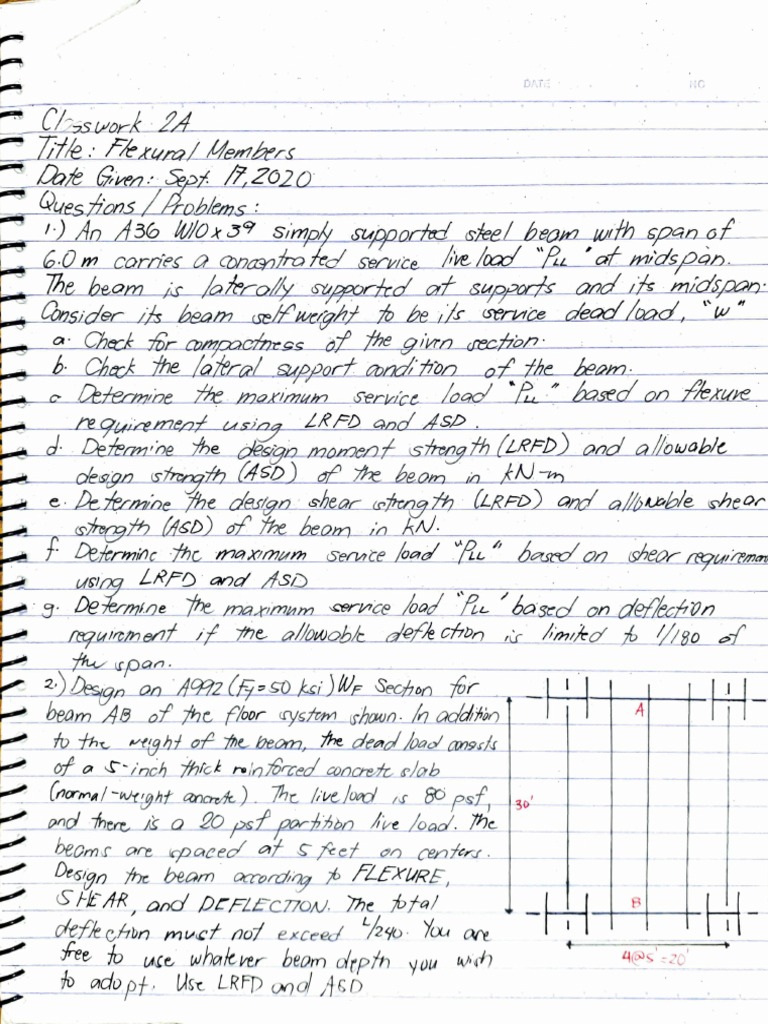 DATE
NO
Classwork 2A
Title: Flexural Members
Date Given: Sept. 17, 2020
Questions / Problems:
1.) An A36 W10x39 simply supported steel beam with span of
6.0 m carries a concentrated service live load "PLL" at midspan.
The beam is laterally supported at supports and its midspan.
Consider its beam selfweight to be its service dead load, "w"
a. Check for compactness of the given section.
b. Check the lateral support condition of the beam.
c. Determine the maximum service load "PLL" based on flexure
requirement using LRFD and ASD.
d. Determine the design moment strength (LRFD) and allowable
design strength (ASD) of the beam in kN-m
e. Determine the design shear strength (LRFD) and allowable shear
strength (ASD) of the beam in kN.
f. Determine the maximum service load "PLL" based on shear requirement
using LRFD and ASD
g. Determine the maximum service load "PLL" based on deflection
requirement if the allowable deflection is limited to 1/180 of
the span.
2.) Design an A992 (Fy=50 ksi) WF Section for
beam AB of the floor system shown. In addition
to the weight of the beam, the dead load consists
of a 5-inch thick reinforced concrete slab
(normal-weight concrete). The live load is 80 psf,
and there is a 20 psf partition live load. The
beams are spaced at 5 feet on centers.
Design the beam according to FLEXURE,
SHEAR, and DEFLECTION. The total
deflection must not exceed L/240. You are
free to use whatever beam depth you wish
to adopt. Use LRFD and ASD
A
30'
B
4@5'=20'